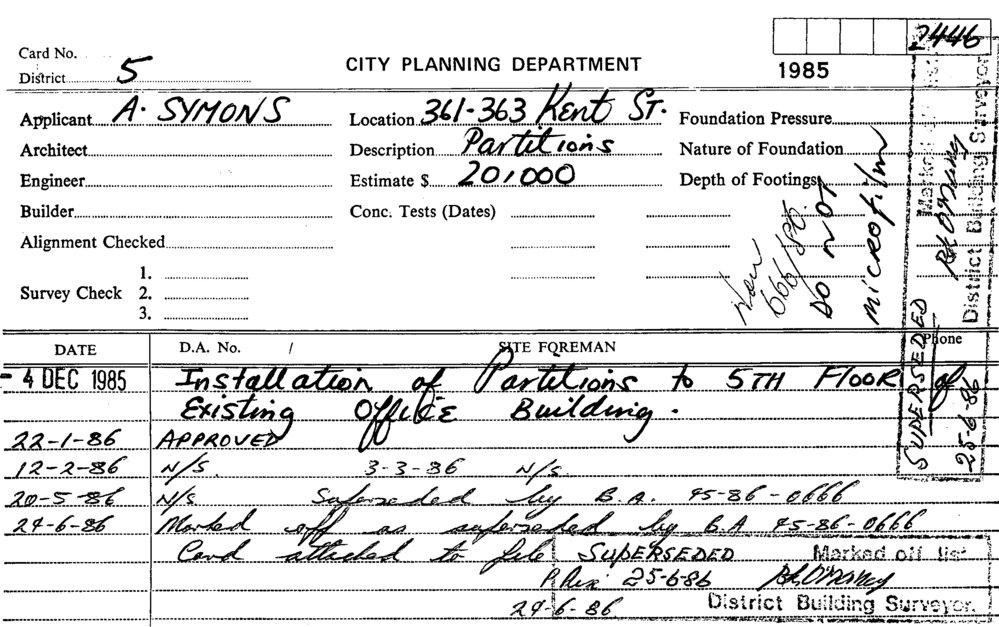 2446
Card No.
District 5
CITY PLANNING DEPARTMENT
1985
Applicant A. SYMONS
Location 361-363 Kent ST.
Foundation Pressure
Architect
Description Partitions
Nature of Foundation
Engineer
Estimate $ 20,000
Depth of Footings
Builder
Conc. Tests (Dates)
Alignment Checked
Survey Check
1.
2.
3.
Now
666/86.
DO NOT
microfilm
SUPERSEDED Marked off list
25-6-86 District Building Surveyor.
DATE
D.A. No. /
SITE FOREMAN
Phone
- 4 DEC 1985 Installation of Partitions to 5TH FLOOR of
Existing OFFICE Building.
22-1-86 APPROVED
12-2-86 N/S. 3-3-86 N/S.
20-5-86 N/S Superseded by B.A. 45-86-0666
24-6-86 Marked off as superseded by B.A 45-86-0666
Card attached to file SUPERSEDED Marked off list
25-6-86
24-6-86 District Building Surveyor.